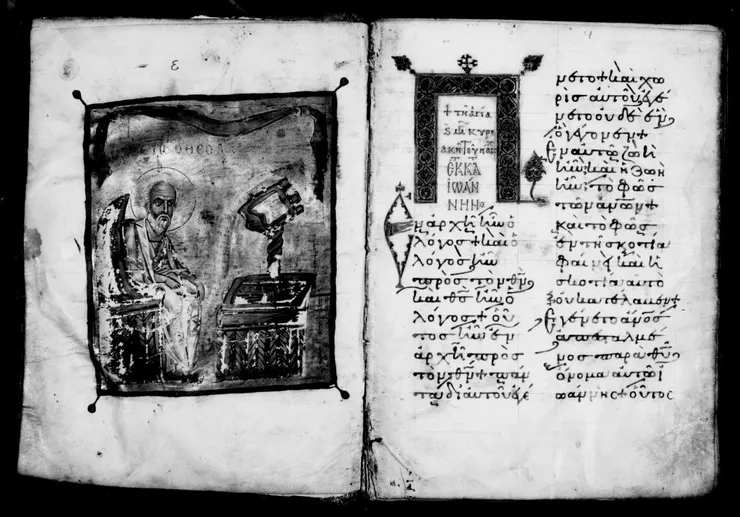 ε
Ο ΘΕΟΛ
+ τῆ ἁγία
κυρι
ακῆ τοῦ πάσ
ἐκ κα
ἰωάν
νην
Ἐν ἀρχῆ ἦν ὁ
λόγος + καὶ ὁ
λόγος ἦν
πρὸς τὸν θν
καὶ θς ἦν ὁ
λόγος + οὗ
τος ἦν ἐν
ἀρχῆ πρὸς
τὸν θν + πάν
τα δι αὐτοῦ ἐγέ
νετο + καὶ χω
ρὶς αὐτοῦ ἐγέ
νετο οὐδὲ ἕν
ὃ γέγονεν +
Ἐν αὐτῶ ζωὴ
ἦν· καὶ ἡ ζωὴ
ἦν τὸ φῶς
τῶν ἀνων +
καὶ τὸ φῶς
ἐν τῆ σκοτία
φαίνει καὶ ἡ
σκοτία αὐτὸ
οὐ κατέλαβεν +
Ἐγένετο ἄνος
ἀπεσταλμέ
νος παρὰ θυ
ὄνομα αὐτῶ ἰ
ωάννης + οὗτος